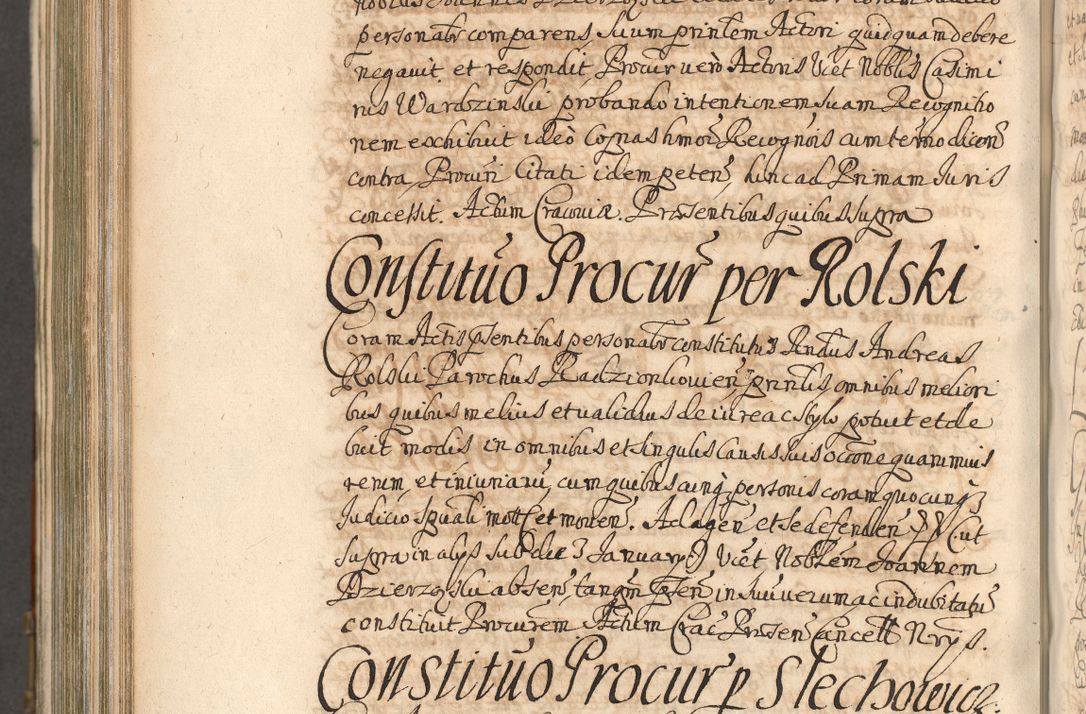 personalr comparens, suum prinlem Actori quidquam debere
negavit et respondit, Procur vero Actoris Vict Noblis Casimi
rus Wardszinski probando intentionem suam Recognitio
nem exhibuit ideo Cognas hmoi Recognois cum termo dicen
contra, Procuri Citati idem peten, hunc ad Primam Juris
concessit. Actum Cracoviæ. Præsentibus quibus supra
Constituo Procur per Rolski
Coram Actis psentibus personalr constitutus Rndus Andreas
Rolski Parochus Radzionkovien, prinlis omnibus meliori
bus quibus melius et validius de iure ac stylo potuit et de
buit modis in omnibus et singulis Causis suis occone quarumuis
rerum, et iniuriaru, cum quibus cunq personis coram quocunq3
Judicio spuali mott et moven. Ad agen et se defenden PP C. ut
supra in alys sub die 3 January Vict Noblem Joannem
Dzierzgski absen tanqm psen in suu verum ac indubitatu
constituit Procurem Actum Crac Præsen Cancell Nrys.
Constituo Procur p Slechowicz